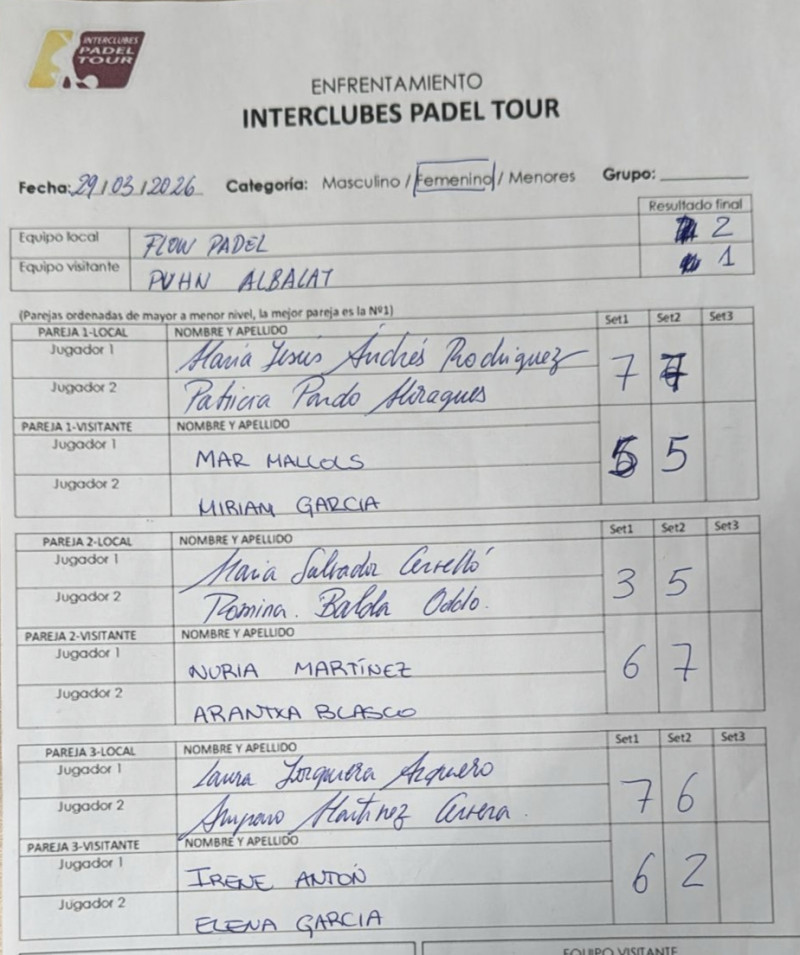 INTERCLUBES
PADEL
TOUR
ENFRENTAMIENTO
INTERCLUBES PADEL TOUR
Fecha: 29/03/2026 Categoría: Masculino / Femenino / Menores Grupo:
Resultado final
Equipo local FLOW PADEL 2
Equipo visitante PVHN ALBALAT 1
(Parejas ordenadas de mayor a menor nivel, la mejor pareja es la Nº1)
PAREJA 1-LOCAL NOMBRE Y APELLIDO Set1 Set2 Set3
Jugador 1 María Jesús Andrés Rodriguez
7 7
Jugador 2 Patricia Pardo Miragues
PAREJA 1-VISITANTE NOMBRE Y APELLIDO
Jugador 1 MAR MALLOLS
5 5
Jugador 2 MIRIAM GARCIA
PAREJA 2-LOCAL NOMBRE Y APELLIDO Set1 Set2 Set3
Jugador 1 Maria Salvador Cervelló
3 5
Jugador 2 Romina. Balda Oddo.
PAREJA 2-VISITANTE NOMBRE Y APELLIDO
Jugador 1 NURIA MARTÍNEZ
6 7
Jugador 2 ARANTXA BLASCO
PAREJA 3-LOCAL NOMBRE Y APELLIDO Set1 Set2 Set3
Jugador 1 Laura Jorquera
7 6
Jugador 2 Amparo Martinez
PAREJA 3-VISITANTE NOMBRE Y APELLIDO
Jugador 1 IRENE ANTÓN
6 2
Jugador 2 ELENA GARCIA
EQUIPO VISITANTE